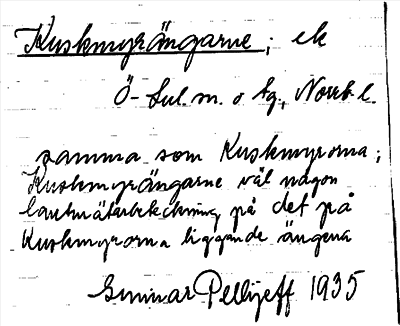 Kuskmyrängarne; ek
Ö-Lul. sn. o tg., Norrb. l.
samma som Kuskmyrorna;
Kuskmyrängarne väl någon
lantmäteribeteckning på det på
Kuskmyrorna liggande ängena
Gunnar Pellijeff 1935